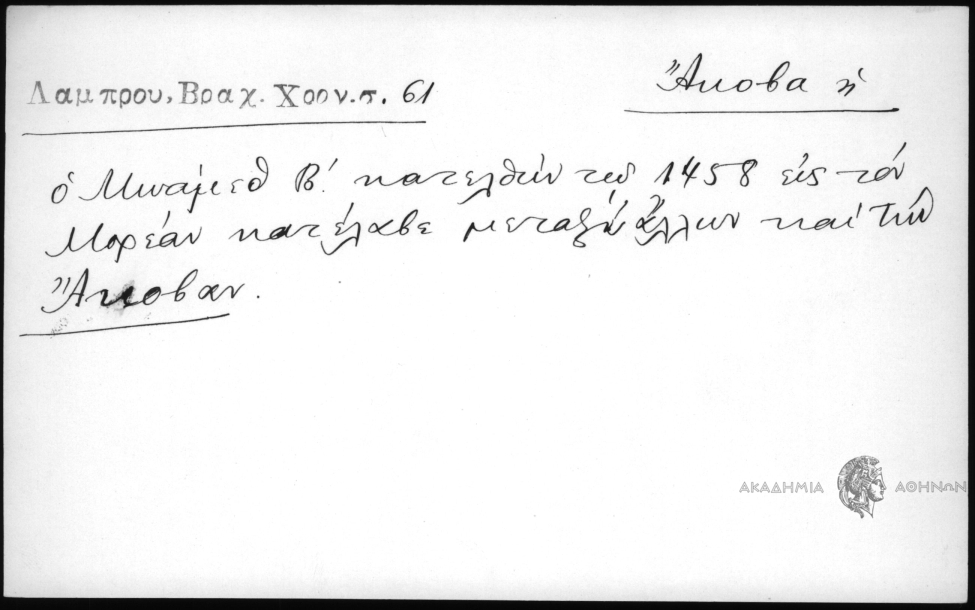 Λαμπρου, Βραχ. Χρον. σ. 61
Ἄκοβα ἡ
ὁ Μωάμεθ Β΄. κατελθὼν τῷ 1458 εἰς τὸν
Μορέαν κατέλαβε μεταξὺ ἄλλων καὶ τὴν
Ἄκοβαν.
ΑΚΑΔΗΜΙΑ ΑΘΗΝΩΝ